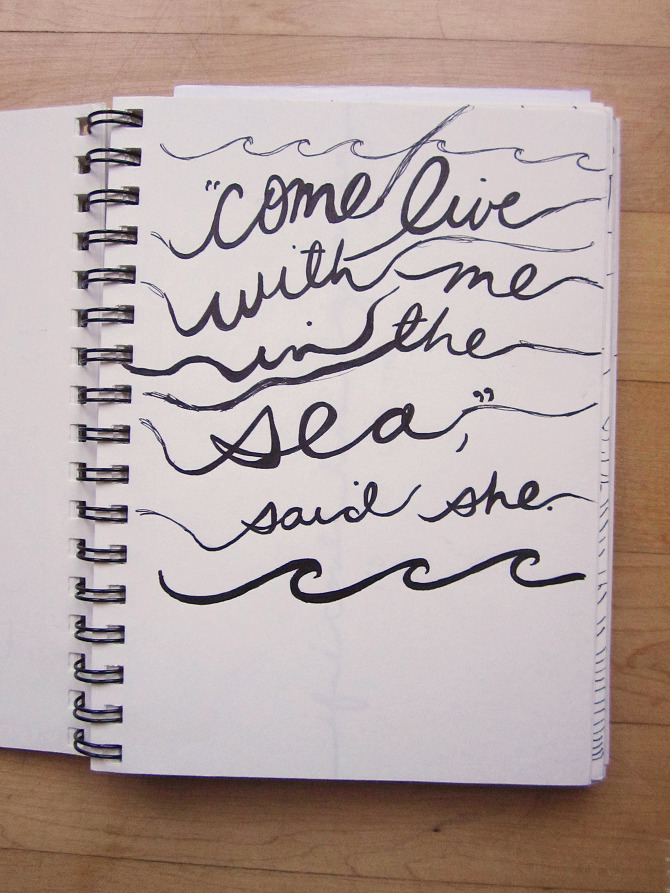 "come live
with me
in the
sea,"
said she.